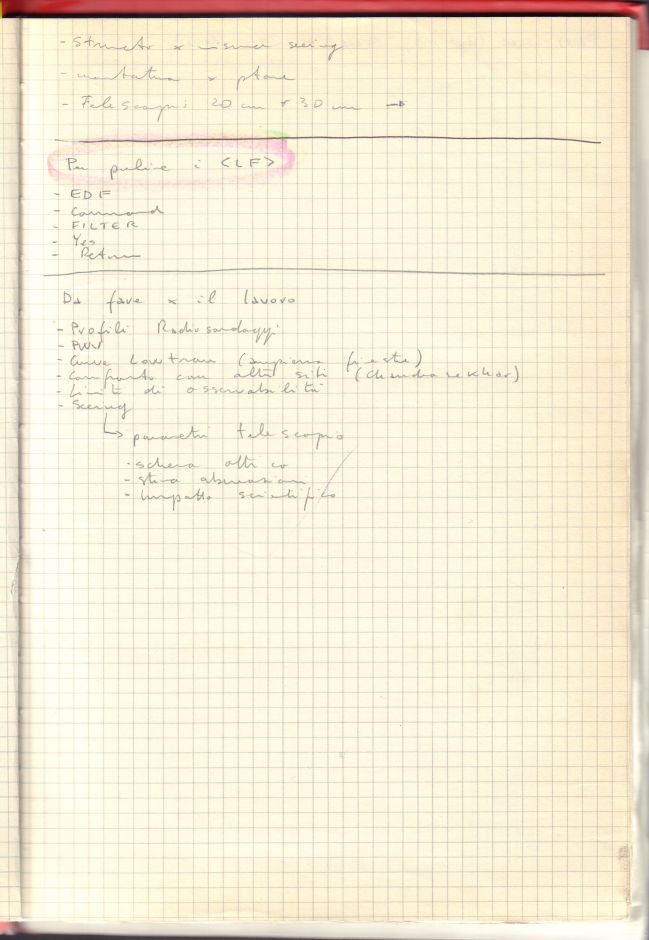 - Strumento x misura seeing
- montatura x
- Telescopi 20 cm + 30 cm →
Per pulire i <LF>
- EDF
- Command
- FILTER
- Yes
- Return
Da fare x il lavoro
- Profili Radiosondaggi
- PWV
- Curve Lowtran (ampiezza finestre)
- Confronto con altri siti (Chandrasekhar)
- Limiti di osservabilità
- Seeing
↳ parametri telescopio
- schema ottico
- stima aberrazioni
- Impatto scientifico